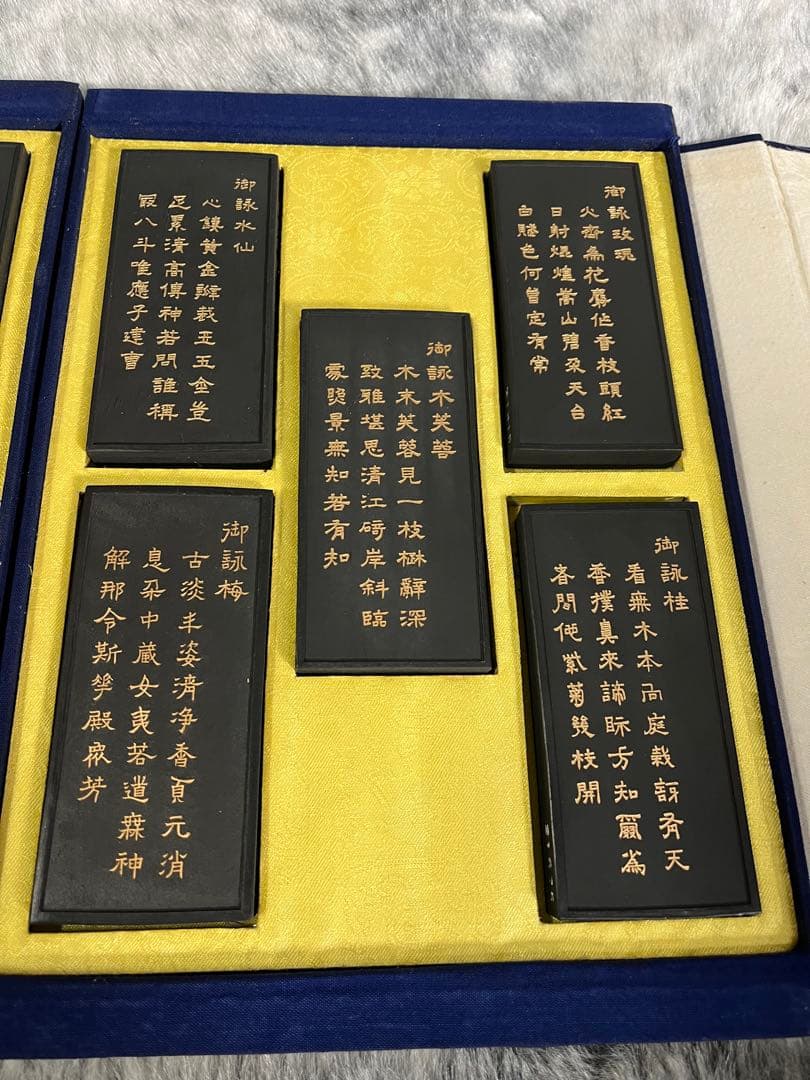 御詠玫瑰
火齊為花麝作香枝頭紅
日射焜煌嵩山碧朶天台
白賸色何曾定有常
御詠水仙
心鏤黃金瓣裁玉五金豈
足累清高傳神若問誰稱
最八斗唯應子建曹
御詠木芙蓉
木末芙蓉見一枝楚辭深
致雅堪思清江碕岸斜臨
處照景無知若有知
御詠桂
看無木本向庭栽訝有天
香撲鼻來諦眎方知爾為
客問他紫菊幾枝開
御詠梅
古淡丰姿清淨香貞元消
息朶中藏女夷若道無神
解那令斯花殿衆芳